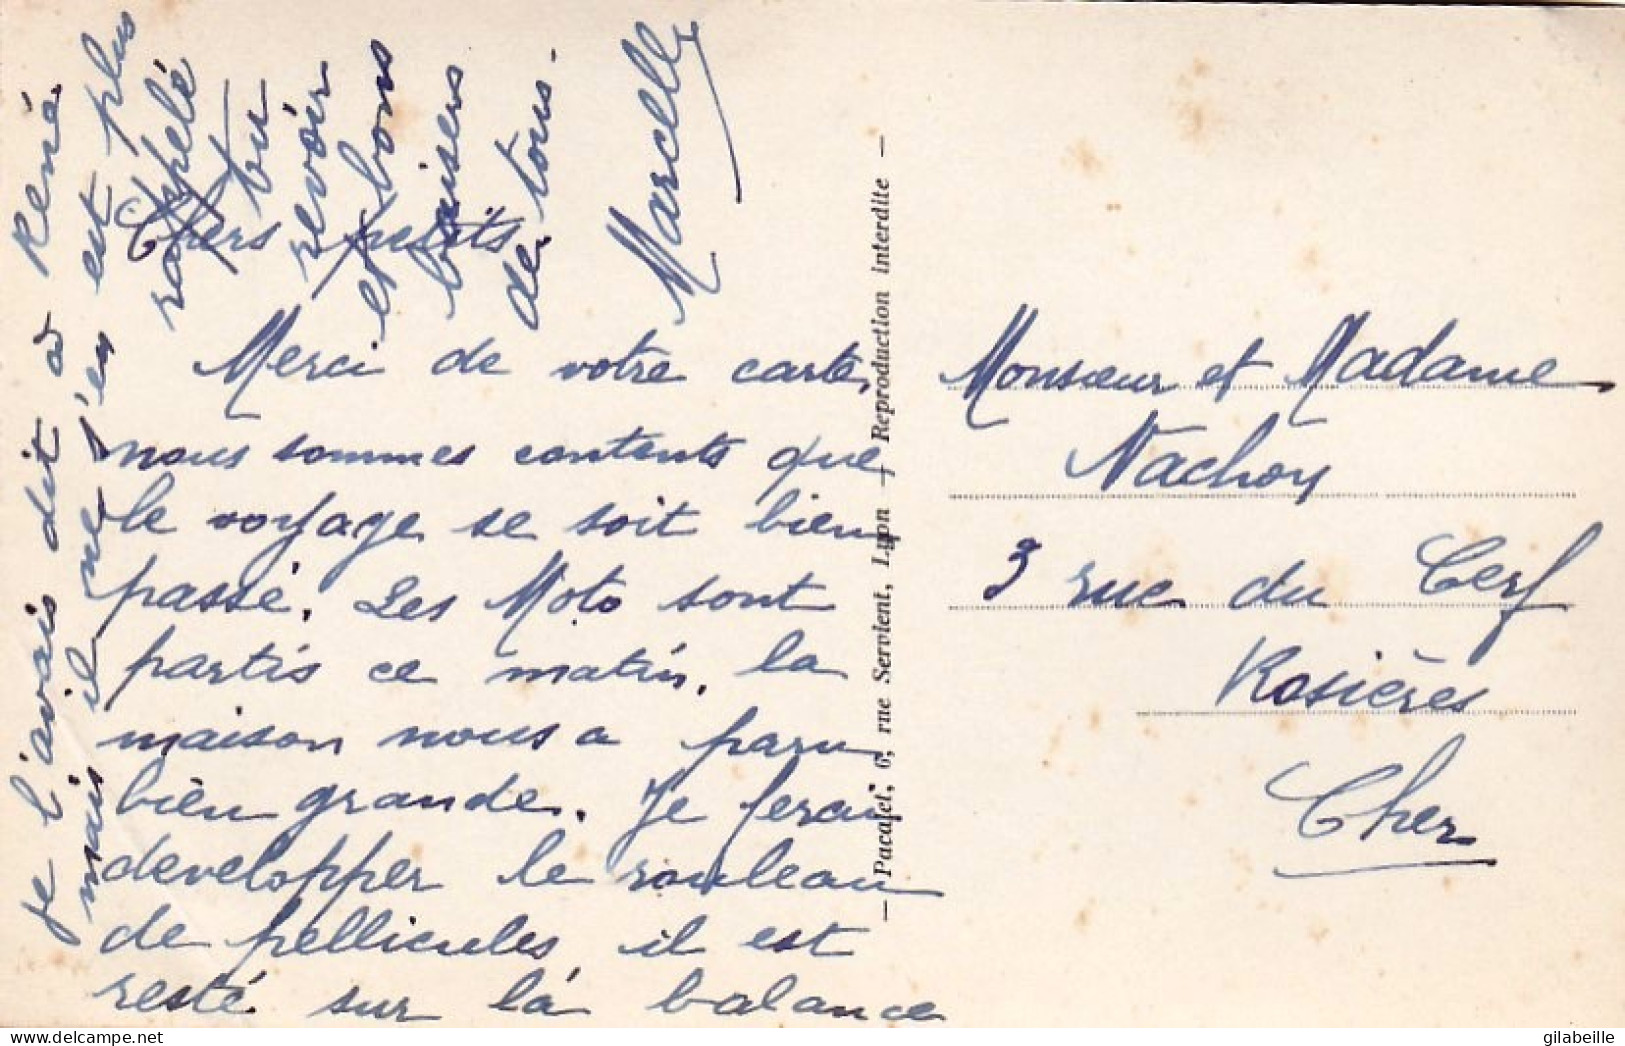 Chers petits
Merci de votre carte,
nous sommes contents que
le voyage se soit bien
passé. Les Moto sont
partis ce matin. la
maison nous a paru
bien grande. Je ferai
developper le rouleau
de pellicules, il est
resté sur la balance
je l'avais dit à René
mais il ne s'en est plus
rappelé
au
revoir
et bons
baisers
de tous.
Marcelle
— Pacalet, 6, rue Servient, Lyon — Reproduction interdite —
Monsieur et Madame
Nachon
3 rue du Cerf
Rosières
Cher
delcampe.net
gilabeille